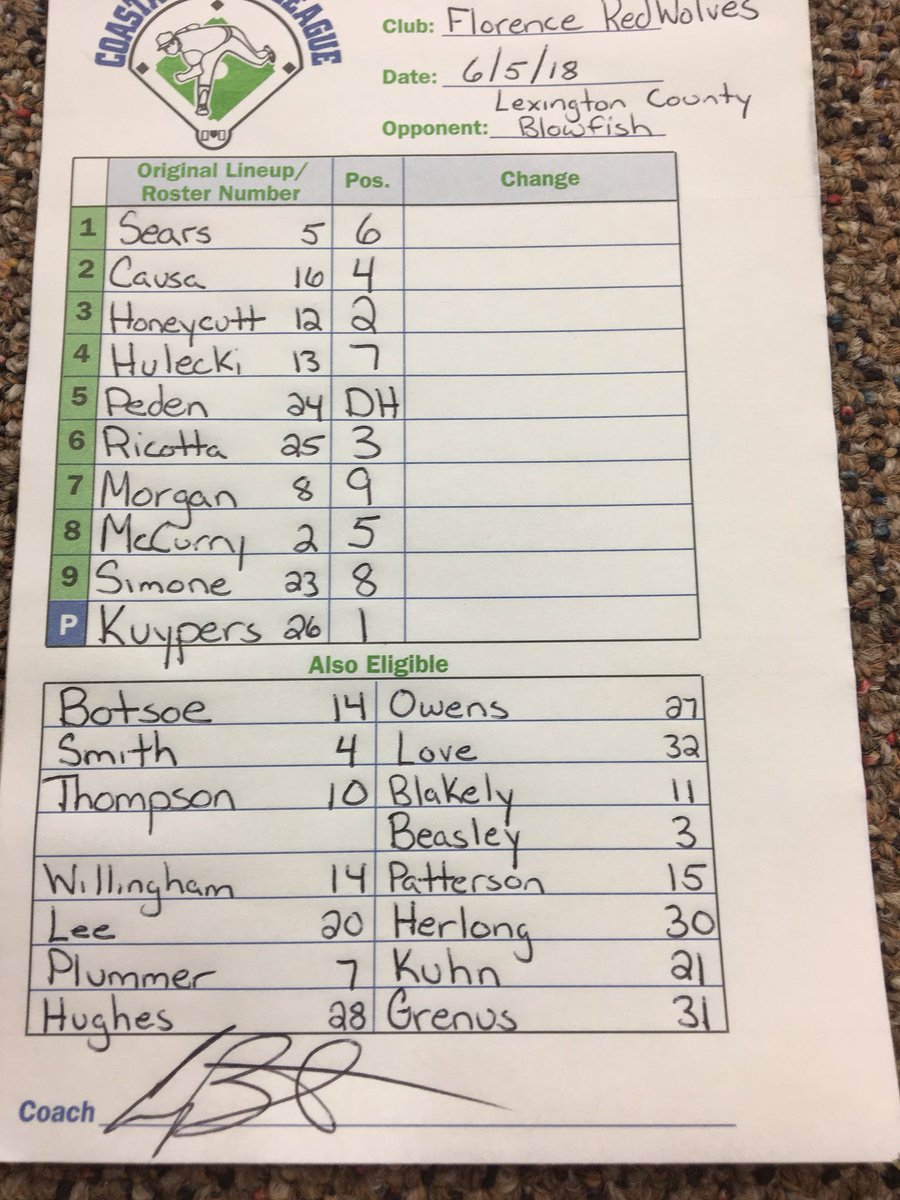 COASTA LEAGUE
Club: Florence RedWolves
Date: 6/5/18
Lexington County
Opponent: Blowfish
Original Lineup/ Roster Number Pos. Change
1 Sears 5 6
2 Causa 16 4
3 Honeycutt 12 2
4 Hulecki 13 7
5 Peden 24 DH
6 Ricotta 25 3
7 Morgan 8 9
8 McCurry 2 5
9 Simone 23 8
P Kuypers 26 1
Also Eligible
Botsoe 14 Owens 27
Smith 4 Love 32
Thompson 10 Blakely 11
Beasley 3
Willingham 14 Patterson 15
Lee 20 Herlong 30
Plummer 7 Kuhn 21
Hughes 28 Grenus 31
Coach